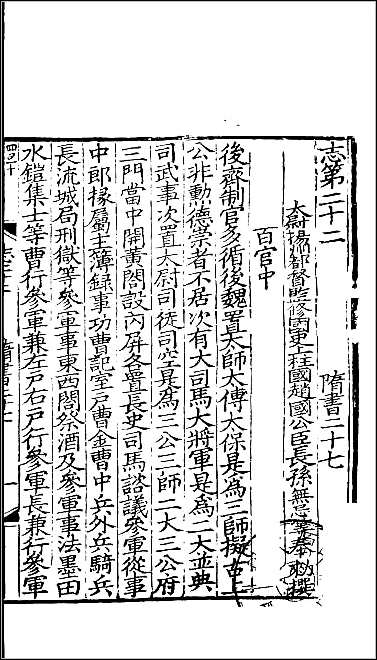 志第二十二　隋書二十七
太尉揚州都督監修國史上柱國趙國公臣長孫無忌等奉勑撰
百官中
後齊制官多循後魏置太師太傅太保是爲三師擬古上
公非勳德崇者不居次有大司馬大將軍是爲二大並典
司武事次置太尉司徒司空是爲三公三師二大三公府
三門當中開黄閤設内屏各置長史司馬諮議參軍從事
中郎掾屬主簿録事功曹記室戸曹金曹中兵外兵騎兵
長流城局刑獄等參軍事東西閤祭酒及參軍事法墨田
水鎧集士等曹行參軍兼左戸右戸行參軍長兼行參軍